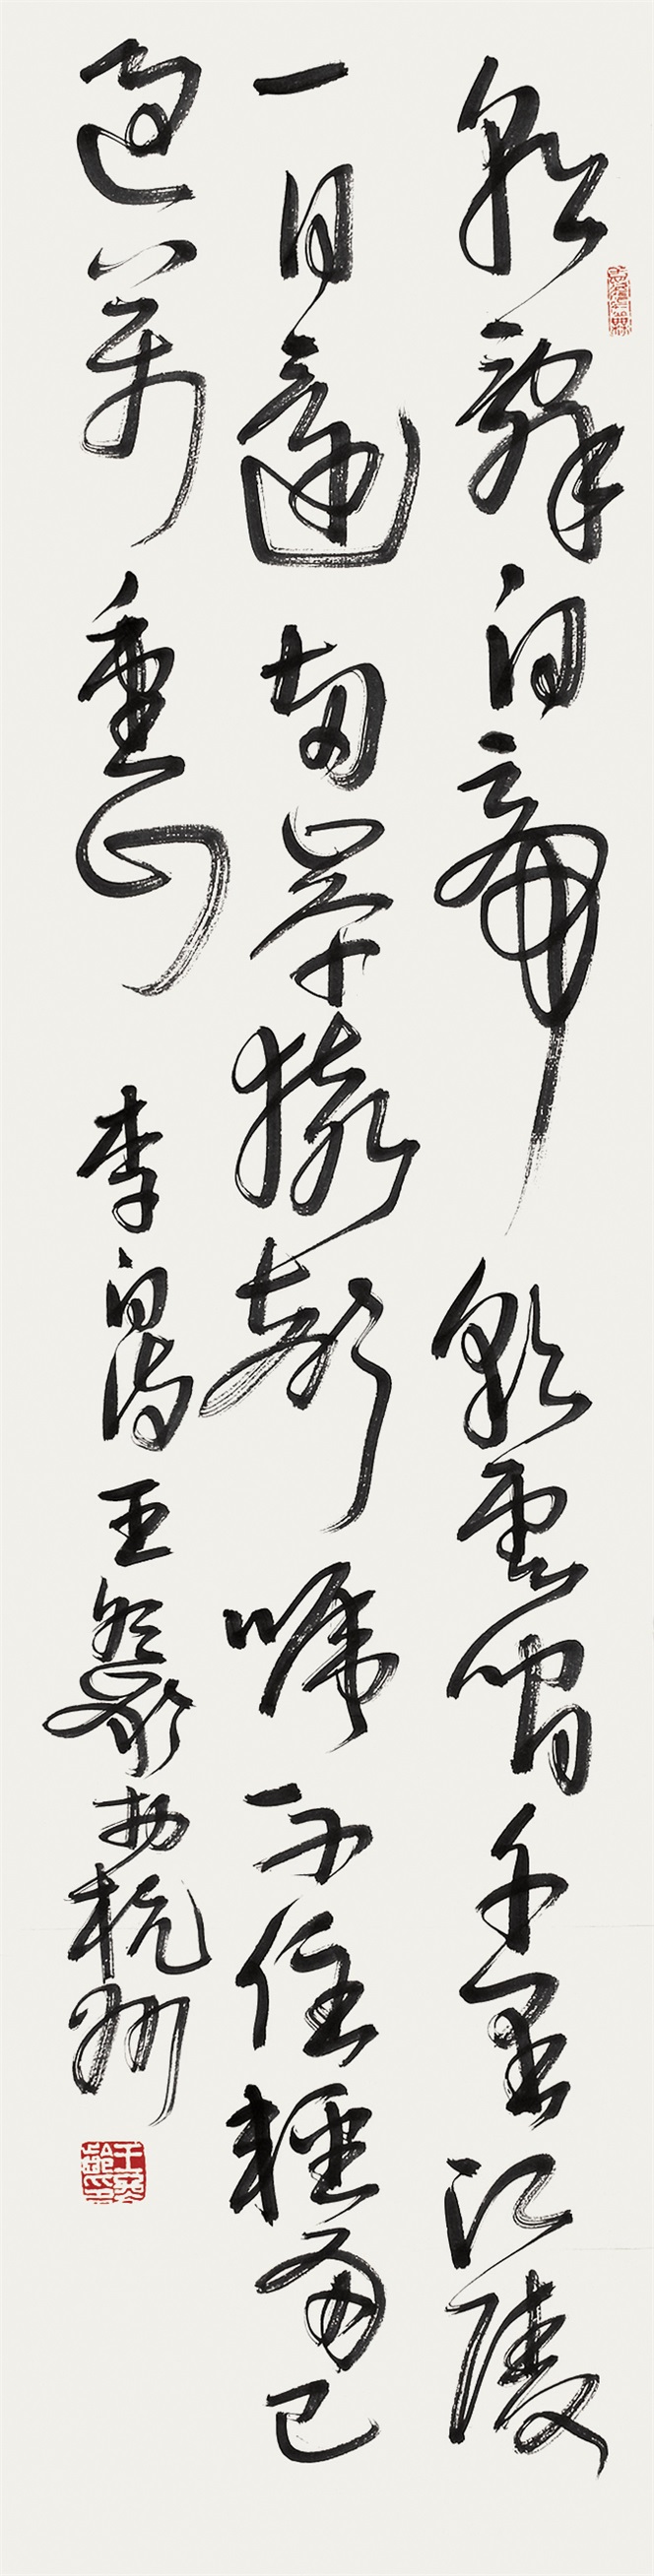 朝辭白帝彩雲間千里江陵
一日還兩岸猿聲啼不住輕舟已
過萬重山 李白詩 王冬齡於杭州
王冬齡印